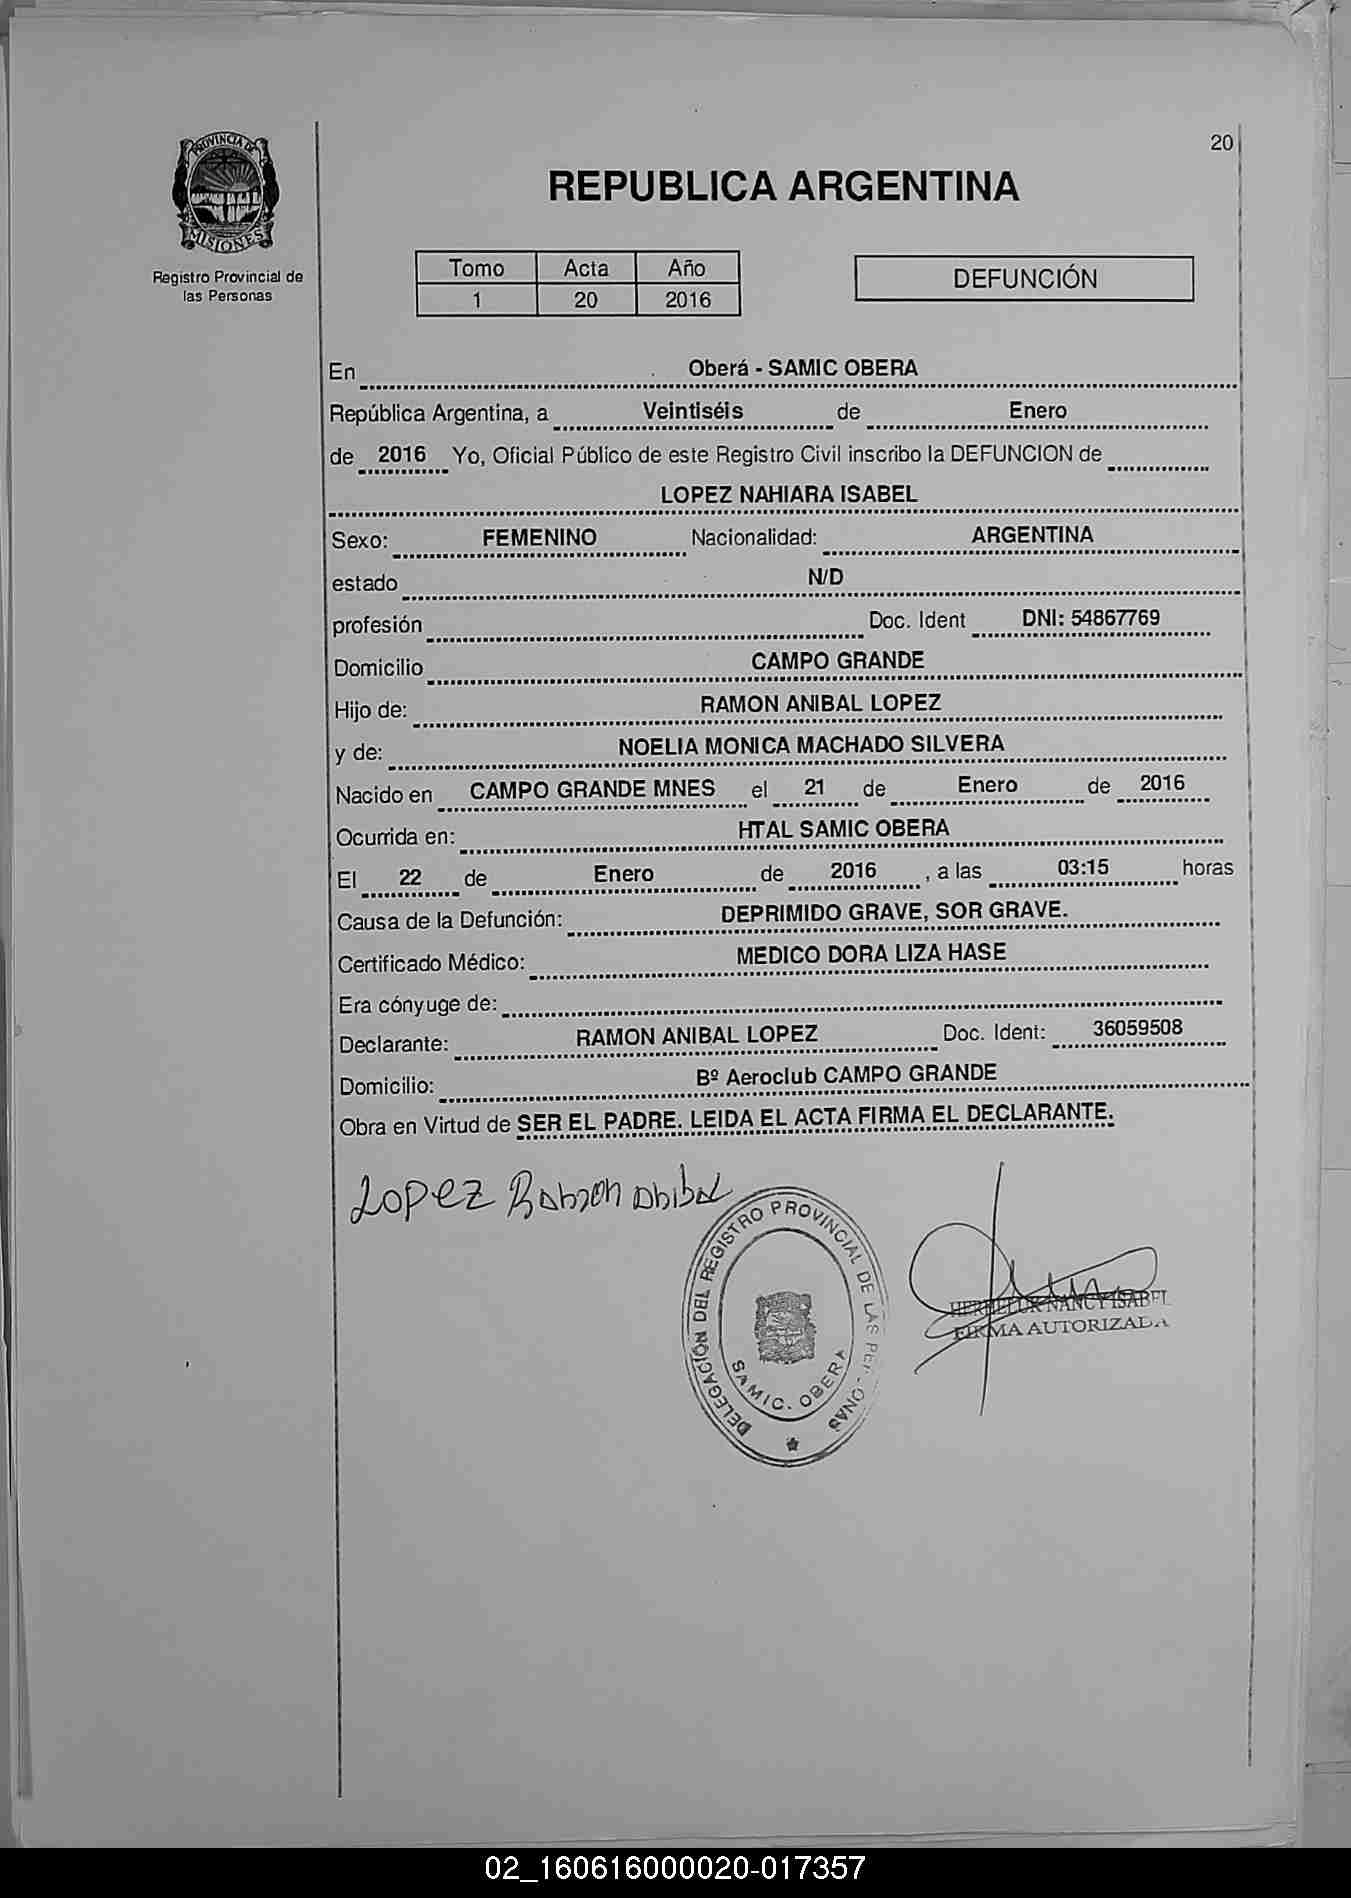 20
PROVINCIA DE
MISIONES
Registro Provincial de
las Personas
REPUBLICA ARGENTINA
Tomo Acta Año
1 20 2016
DEFUNCIÓN
En Oberá - SAMIC OBERA
República Argentina, a Veintiséis de Enero
de 2016 Yo, Oficial Público de este Registro Civil inscribo la DEFUNCION de
LOPEZ NAHIARA ISABEL
Sexo: FEMENINO Nacionalidad: ARGENTINA
estado N/D
profesión Doc. Ident DNI: 54867769
Domicilio CAMPO GRANDE
Hijo de: RAMON ANIBAL LOPEZ
y de: NOELIA MONICA MACHADO SILVERA
Nacido en CAMPO GRANDE MNES el 21 de Enero de 2016
Ocurrida en: HTAL SAMIC OBERA
El 22 de Enero de 2016 , a las 03:15 horas
Causa de la Defunción: DEPRIMIDO GRAVE, SOR GRAVE.
Certificado Médico: MEDICO DORA LIZA HASE
Era cónyuge de:
Declarante: RAMON ANIBAL LOPEZ Doc. Ident: 36059508
Domicilio: Bº Aeroclub CAMPO GRANDE
Obra en Virtud de SER EL PADRE. LEIDA EL ACTA FIRMA EL DECLARANTE.
Lopez Ramon Anibal
DELEGACIÓN DEL REGISTRO PROVINCIAL DE LAS PERSONAS
SAMIC. OBERA
NANCY ISABEL
FIRMA AUTORIZADA
02_160616000020-017357